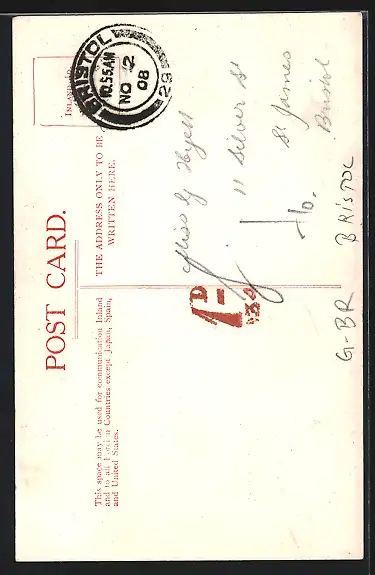 POST CARD.
THE ADDRESS ONLY TO BE
WRITTEN HERE.
This space may be used for communication Inland
and to all Countries except Japan, Spain,
and United States.
BRISTOL
10.55AM
NO 2
08
29
1D
Miss G Hyett
11 Silver St
St James
Bristol
G-BR BRISTOL